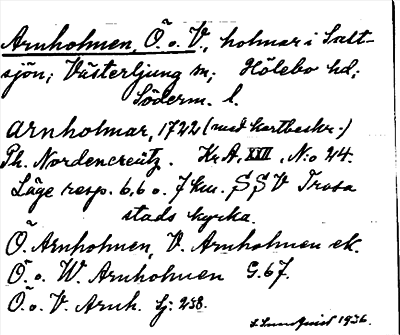 Arnholmen, Ö. o. V., holmar i Salt-
sjön; Västerljung sn; Hölebo hd;
Söderm. l.
Arnholmar, 1722 (med kartbeskr.)
Ph. Nordencreütz. Kr. A. XXII, N:o 24.
Läge resp. 6,6 o. 7 km. SSV Trosa
stads kyrka.
Ö. Arnholmen, V. Arnholmen ek.
Ö. o. W. Arnholmen G. 67.
Ö. o. V. Arnh. Sj: 258.
1936.